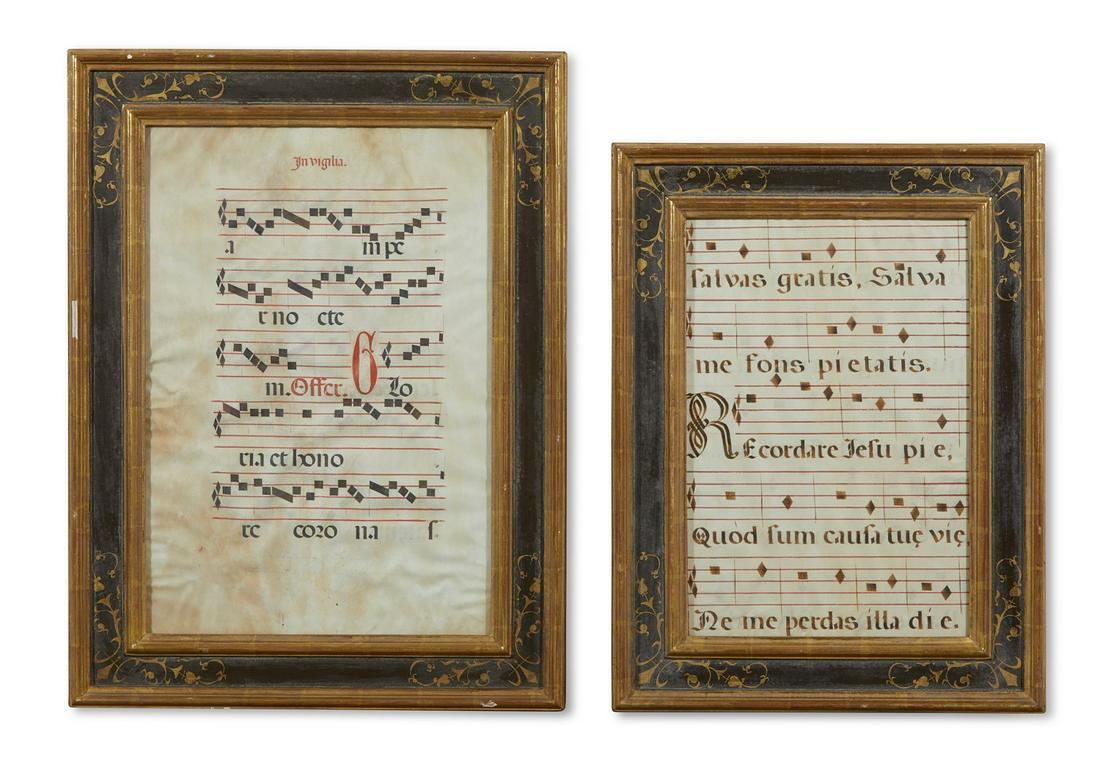 In vigilia.
a in pe
r no cte
m. Offer. Glo
ria et hono
re coro na s
salvas gratis, Salva
me fons pietatis.
REcordare Jesu pie,
Quòd sum causa tuę vię,
Ne me perdas illa die.